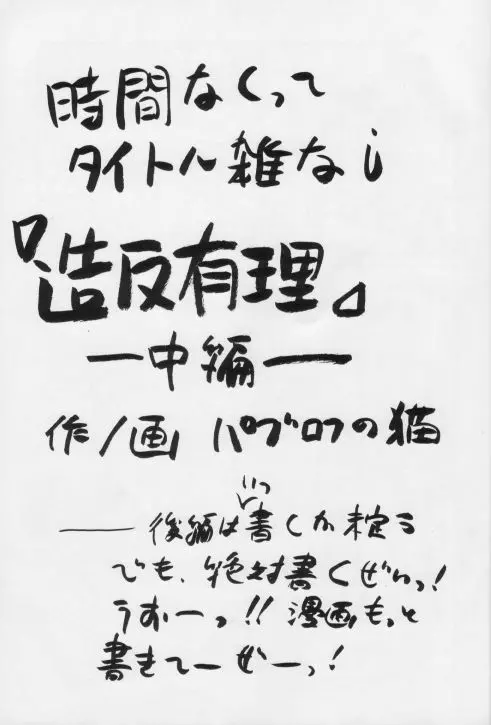 時間なくって
タイトル雑なし
『造反有理』
―中編―
作/画 パブロフの猫
いつ
――後編は書くか未定ら
でも、絶対書くぜいっ!
うおーっ!! 漫画もっと
書きてーぜーっ!